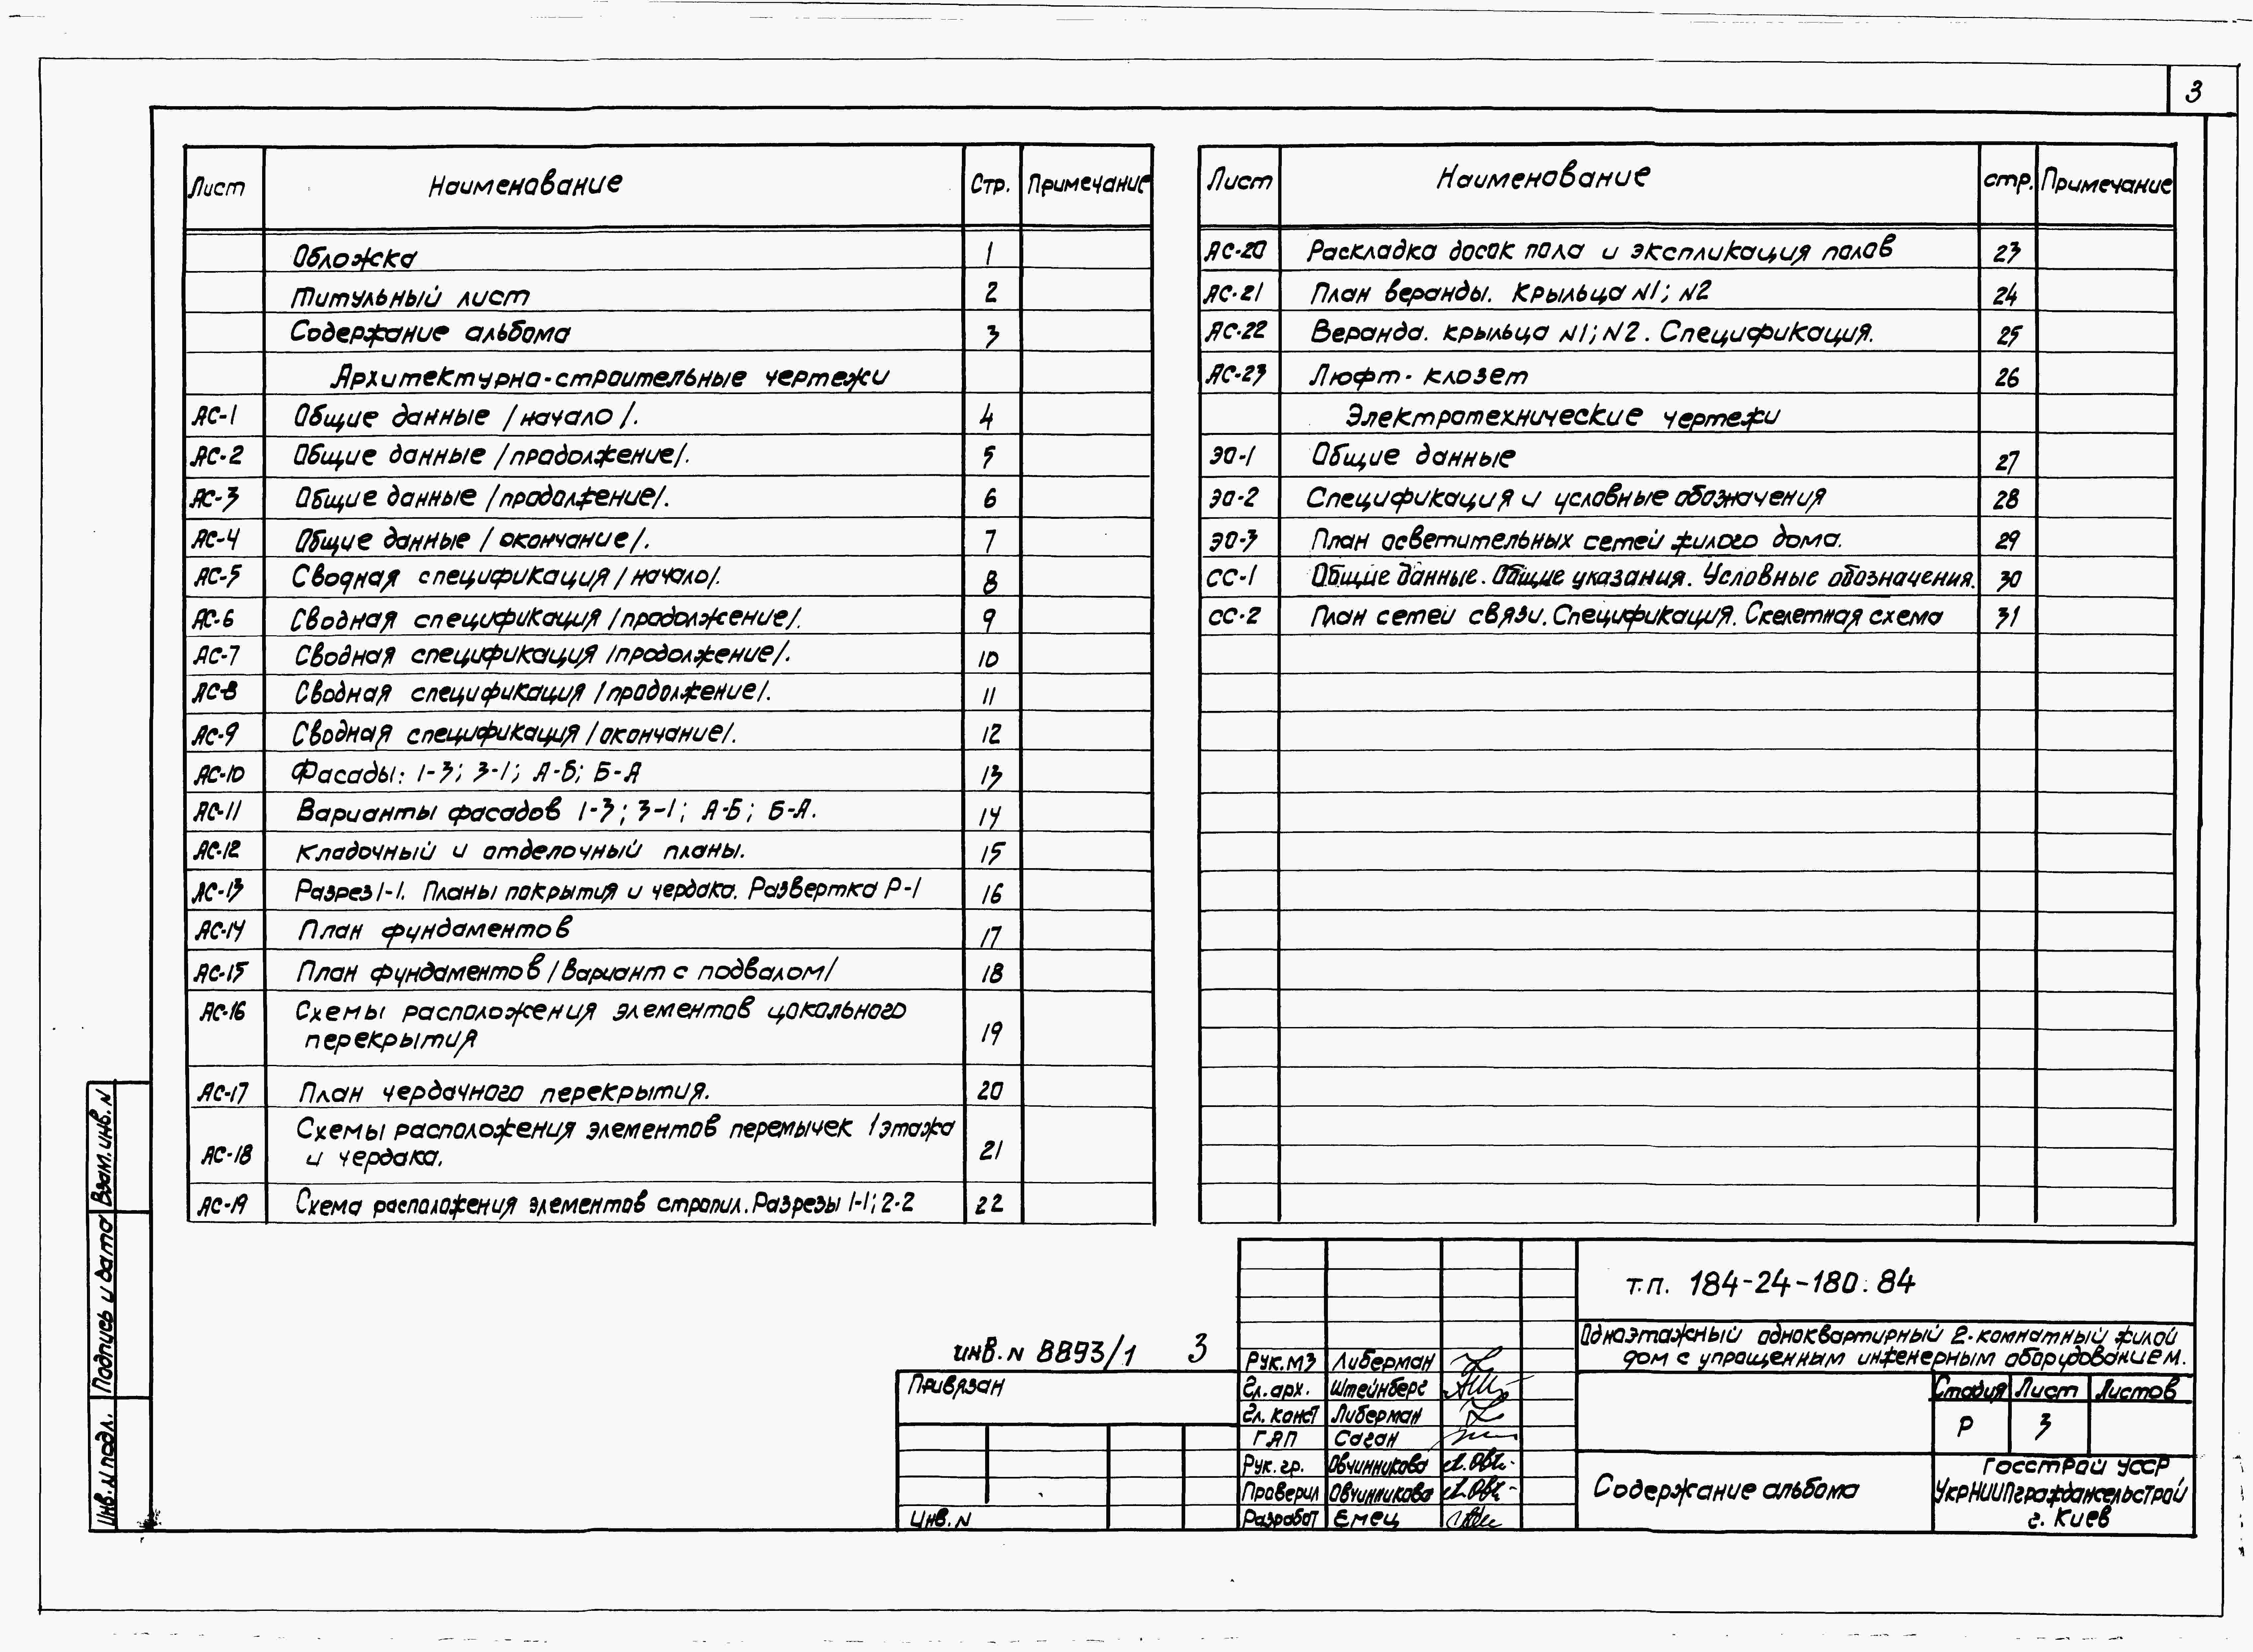 3
Лист Наименование Стр. Примечание
Обложка 1
Титульный лист 2
Содержание альбома 3
Архитектурно-строительные чертежи
АС-1 Общие данные /начало/. 4
АС-2 Общие данные /продолжение/. 5
АС-3 Общие данные /продолжение/. 6
АС-4 Общие данные /окончание/. 7
АС-5 Сводная спецификация /начало/. 8
АС-6 Сводная спецификация /продолжение/. 9
АС-7 Сводная спецификация /продолжение/. 10
АС-8 Сводная спецификация /продолжение/. 11
АС-9 Сводная спецификация /окончание/. 12
АС-10 Фасады: 1-3; 3-1; А-Б; Б-А 13
АС-11 Варианты фасадов 1-3; 3-1; А-Б; Б-А. 14
АС-12 Кладочный и отделочный планы. 15
АС-13 Разрез 1-1. Планы покрытия и чердака. Развертка Р-1 16
АС-14 План фундаментов 17
АС-15 План фундаментов /вариант с подвалом/ 18
АС-16 Схемы расположения элементов цокольного
перекрытия 19
АС-17 План чердачного перекрытия. 20
Схемы расположения элементов перемычек 1 этажа
АС-18 и чердака. 21
АС-19 Схема расположения элементов стропил. Разрезы 1-1; 2-2 22
Лист Наименование стр. Примечание
АС-20 Раскладка досок пола и экспликация полов 23
АС-21 План веранды. Крыльца N1; N2 24
АС-22 Веранда. крыльца N1; N2. Спецификация. 25
АС-23 Люфт-клозет 26
Электротехнические чертежи
ЭО-1 Общие данные 27
ЭО-2 Спецификация и условные обозначения 28
ЭО-3 План осветительных сетей жилого дома. 29
СС-1 Общие данные. Общие указания. Условные обозначения. 30
СС-2 План сетей связи. Спецификация. Скелетная схема 31
Взам. инв. N
Подпись и дата
Инв. N подл.
инв. N 8893/1 3
Привязан
Инв. N
Рук. МЗ Либерман
Гл. арх. Штейнберг
Гл. конст Либерман
ГАП Саган
Рук. гр. Овчинникова
Проверил Овчинникова
Разработ Емец
т.п. 184-24-180.84
Одноэтажный одноквартирный 2-комнатный жилой
дом с упрощенным инженерным оборудованием.
Стадия Лист Листов
Р 3
Содержание альбома
Госстрой УССР
УкрНИИПграждансельстрой
г. Киев